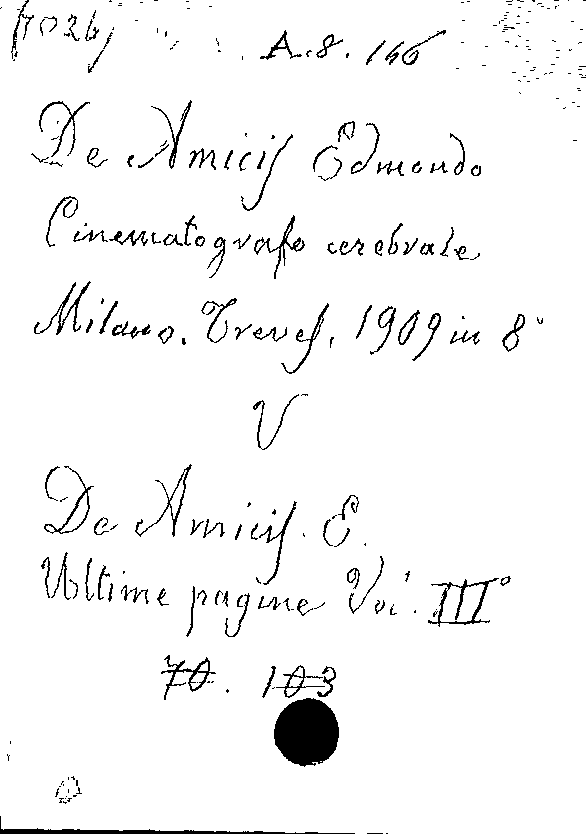 (7026)
A.8.146
De Amicis Edmondo
Cinematografo cerebrale
Milano. Treves. 1909 in 8°
V
De Amicis. E.
Ultime pagine Vol. III°
70. 103